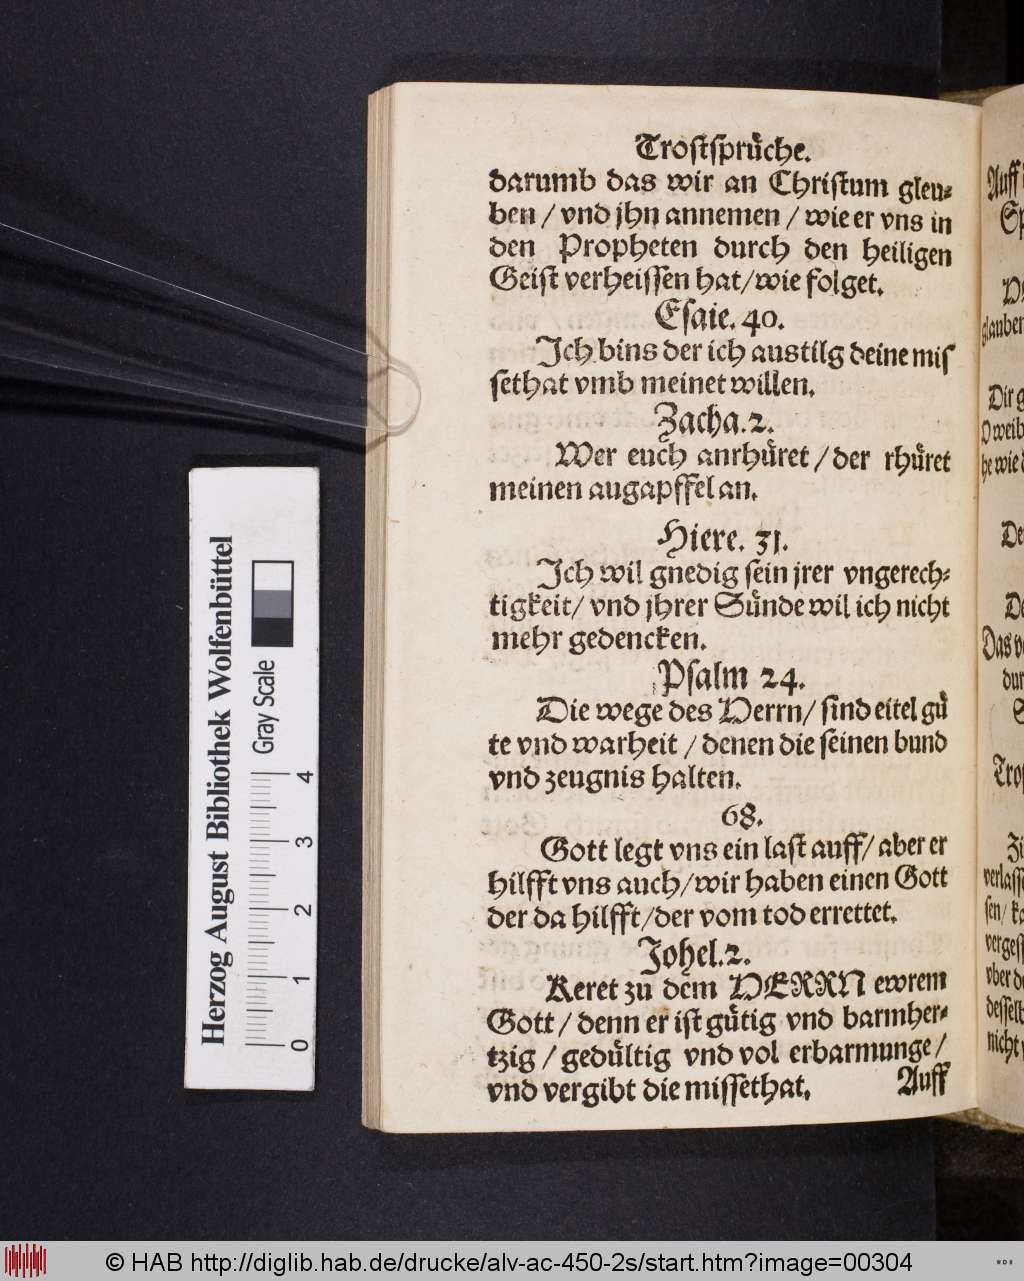 Trostsprüche.
darumb das wir an Christum gleu-
ben / vnd jhn annemen / wie er vns in
den Propheten durch den heiligen
Geist verheissen hat/wie folget.
Esaie. 40.
Ich bins der ich austilg deine mis
sethat vmb meinet willen.
Zacha.2.
Wer euch anrhüret / der rhüret
meinen augapffel an.
Hiere. 31.
Ich wil gnedig sein jrer vngerech-
tigkeit/ vnd jhrer Sünde wil ich nicht
mehr gedencken.
Psalm 24.
Die wege des HErrn/ sind eitel gü
te vnd warheit / denen die seinen bund
vnd zeugnis halten.
68.
Gott legt vns ein last auff/ aber er
hilfft vns auch/wir haben einen Gott
der da hilfft/der vom tod errettet.
Johel.2.
Keret zu dem HERRN ewrem
Gott / denn er ist gütig vnd barmher-
tzig / gedültig vnd vol erbarmunge /
vnd vergibt die missethat. Auff
Auff
glauben
Dir
O weib
he wie
Das
verlasse
nicht
Herzog August Bibliothek Wolfenbüttel
Gray Scale
0 1 2 3 4
© HAB http://diglib.hab.de/drucke/alv-ac-450-2s/start.htm?image=00304